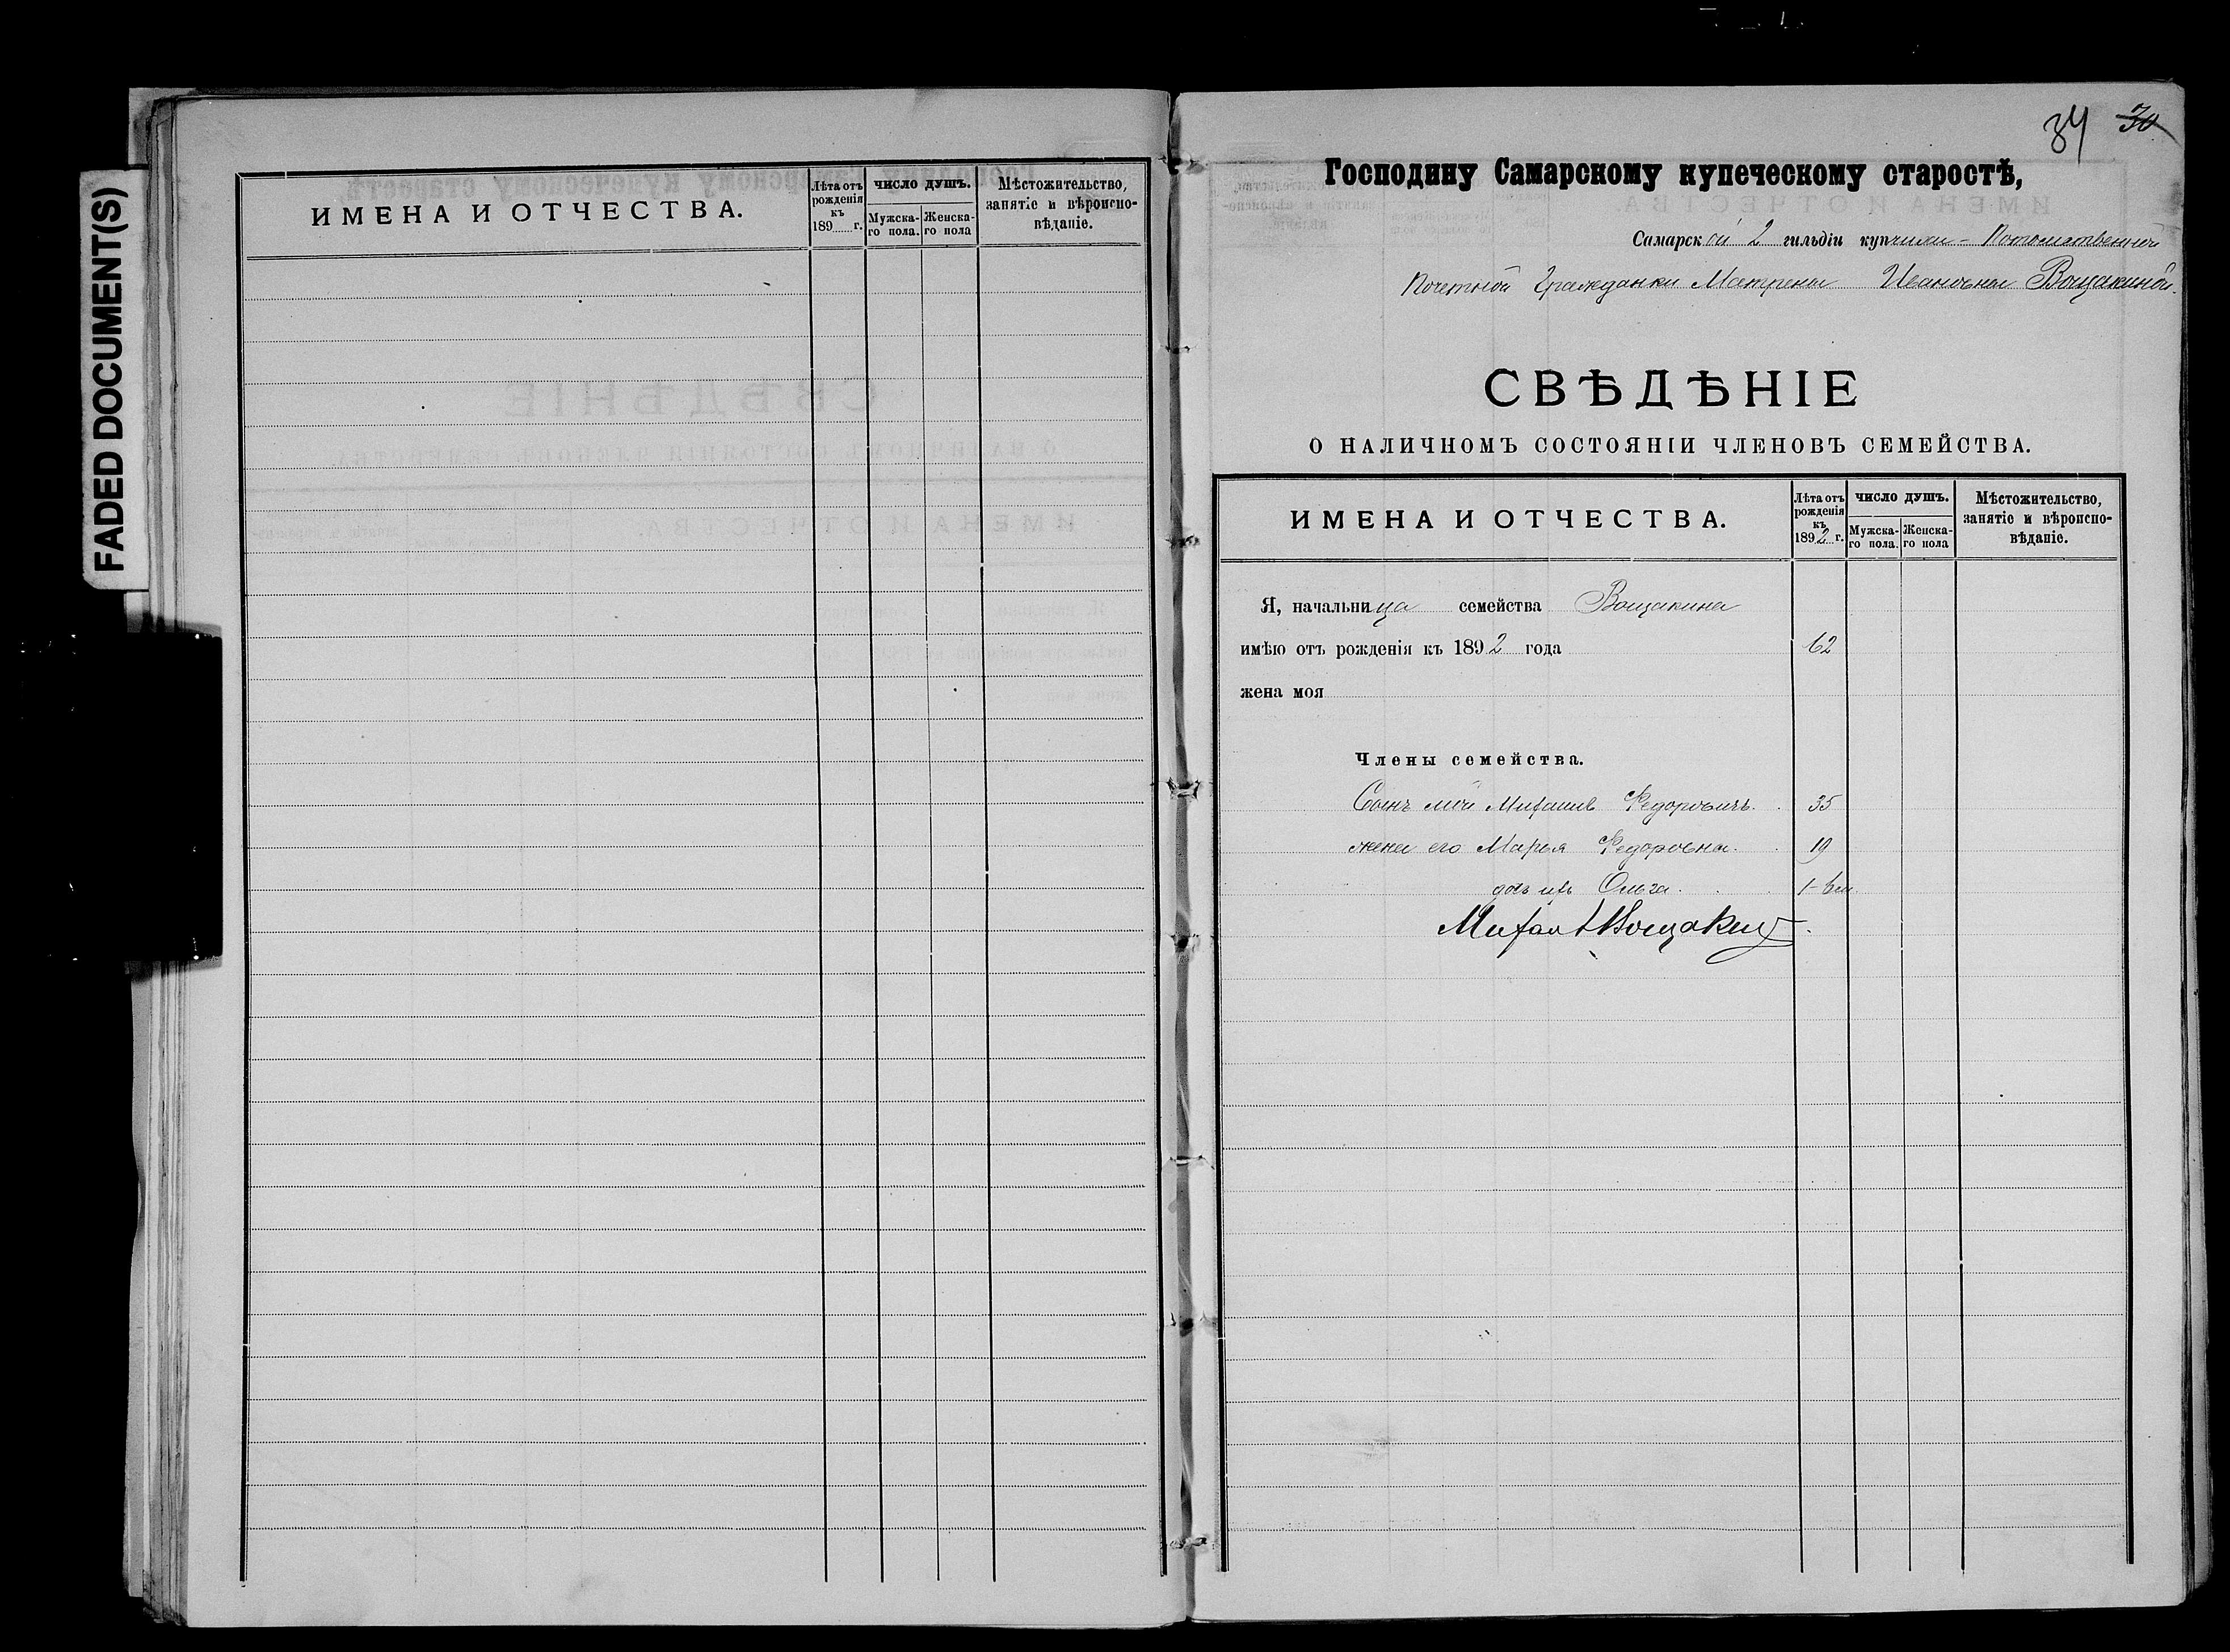 FADED DOCUMENT(S)
ИМЕНА И ОТЧЕСТВА.
Лѣта отъ рожденія къ 189 г.
ЧИСЛО ДУШЪ.
Мужска-го пола.
Женска-го пола
Мѣстожительство, занятіе и вѣроиспо-вѣданіе.
34 30
Господину Самарскому купеческому старостѣ,
Самарской 2 гильдіи купчихи - Потомственной
Почетной Гражданки Матрены Ивановны Вощакиной.
СВѢДѢНІЕ
О НАЛИЧНОМЪ СОСТОЯНІИ ЧЛЕНОВЪ СЕМЕЙСТВА.
ИМЕНА И ОТЧЕСТВА.
Лѣта отъ рожденія къ 1892 г.
ЧИСЛО ДУШЪ.
Мужска-го пола.
Женска-го пола
Мѣстожительство, занятіе и вѣроиспо-вѣданіе.
Я, начальница семейства Вощакина
имѣю отъ рожденія къ 1892 года 62
жена моя
Члены семейства.
Сынъ мой Михаилъ Федоровичъ. 35
жена его Марья Федоровна. 19
дочь ихъ Ольга.
Вощакинъ